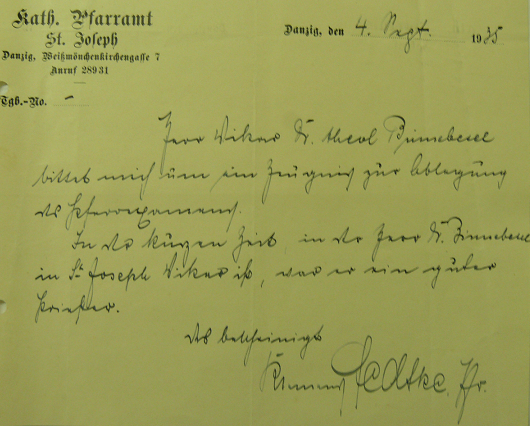 Kath. Pfarramt
St. Joseph
Danzig, Weißmönchenkirchengasse 7
Anruf 28931
Tgb.-No. –
Danzig, den 4. Sept. 1935
Herr Vikar Dr. theol Binnebesel
bittet mich um ein Zeugnis zur Ablegung
des Pfarrexamens.
In der kurzen Zeit, in der Herr Dr. Binnebesel
in St. Joseph Vikar ist, war er ein guter
Priester.
Das bescheinigt
Klemens Fedtke, Pfr.